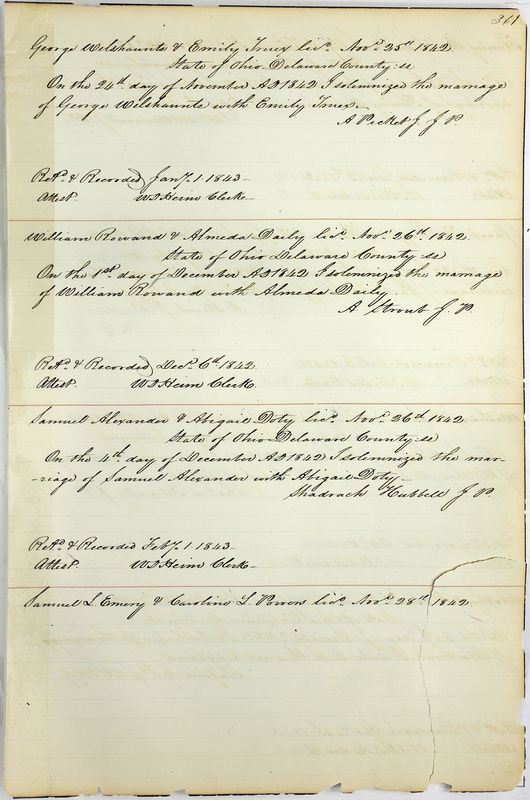 361
George Welshaunts & Emily Truex licd. Novr. 25th 1842
State of Ohio Delaware County: ss
On the 24th day of November AD 1842 I solemnized the marriage
of George Welshaunts with Emily Truex.
A Picket J J P
Retd. & Recorded Jany. 1 1843
Attest. W D Heim Clerk
William Rowand & Almeda Daily licd. Novr. 26th 1842
State of Ohio Delaware County ss
On the 1st day of December AD 1842 I solemnized the marriage
of William Rowand with Almeda Daily
A Stroub J. P.
Retd. & Recorded Decr. 6th 1842
Attest. W D Heim Clerk
Samuel Alexander & Abigail Doty licd. Novr. 26th 1842
State of Ohio Delaware County: ss
On the 4th day of December AD 1842 I solemnized the mar-
-riage of Samuel Alexander with Abigail Doty
Shadrach Hubbell J P
Retd. & Recorded Feby. 1 1843
Attest. W D Heim Clerk
Samuel L Emery & Caroline L. Powers licd. Novr. 28th 1842